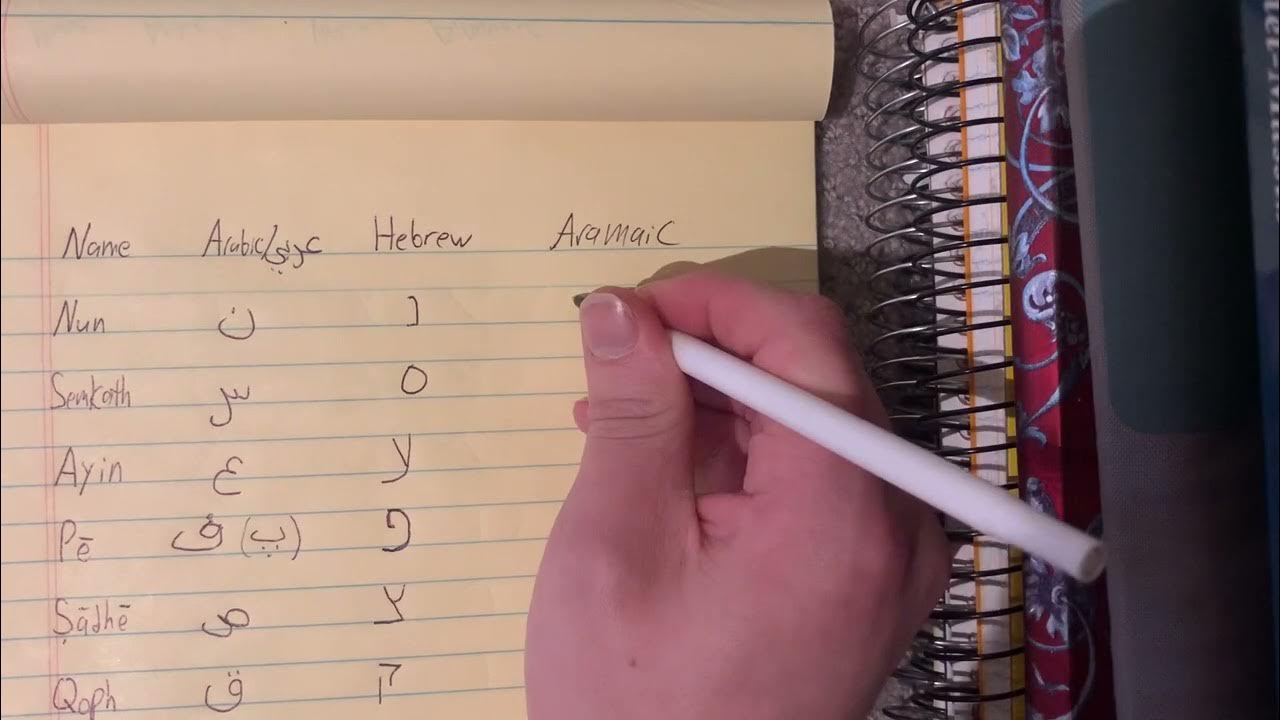 Name Arabic/عربي Hebrew Aramaic
Nun ن נ
Semkath س ס
Ayin ع ע
Pē ف (پ) פ
Ṣādhē ص צ
Qoph ق ק